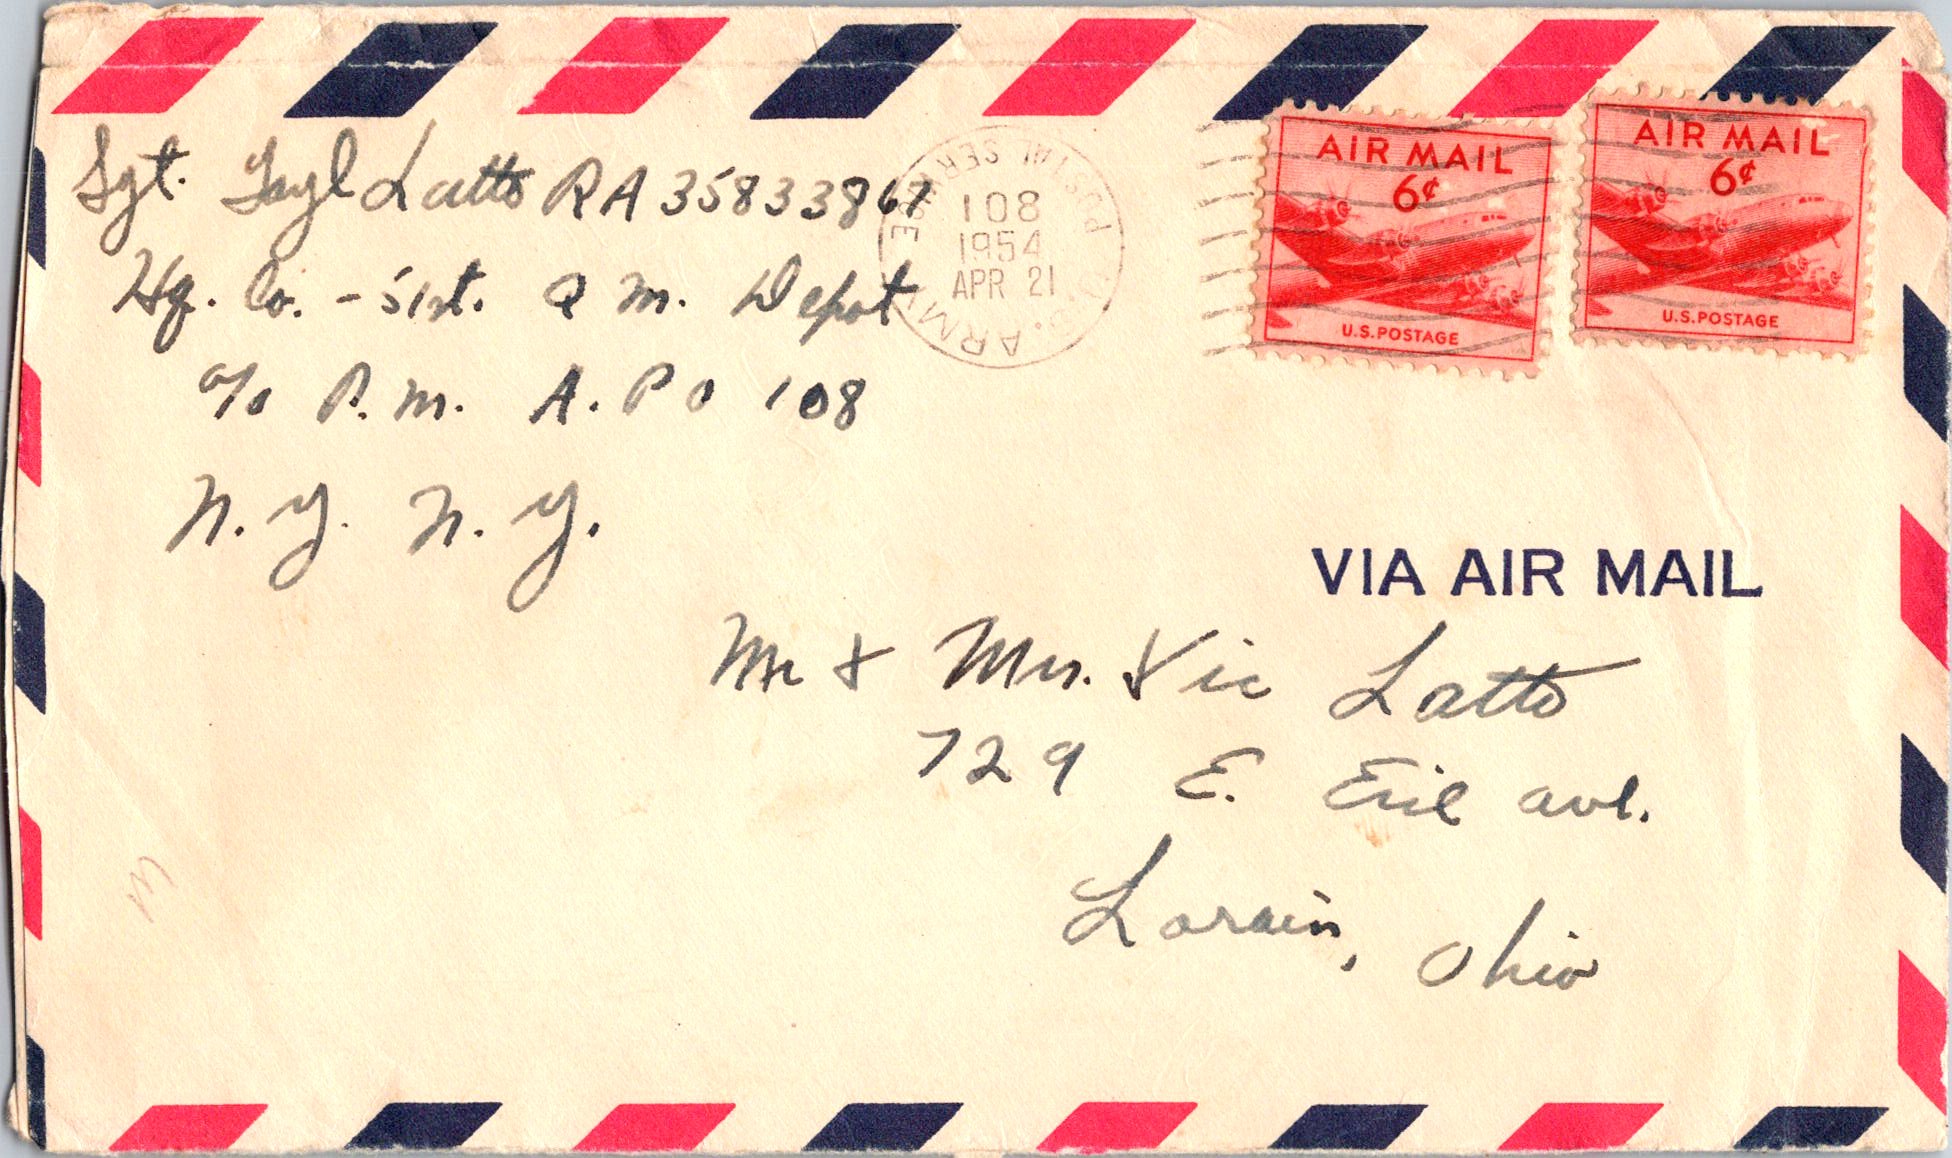 Sgt. Gayl Latto RA 35833867
Hq. Co. - 51st. Q M. Depot
c/o P. M. A. P O 108
N. Y. N. Y.
U.S. ARMY POSTAL SERVICE
108
1954
APR 21
AIR MAIL
6¢
U.S. POSTAGE
AIR MAIL
6¢
U.S. POSTAGE
VIA AIR MAIL
Mr & Mrs. Vic Latto
729 E. Erie ave.
Lorain, Ohio